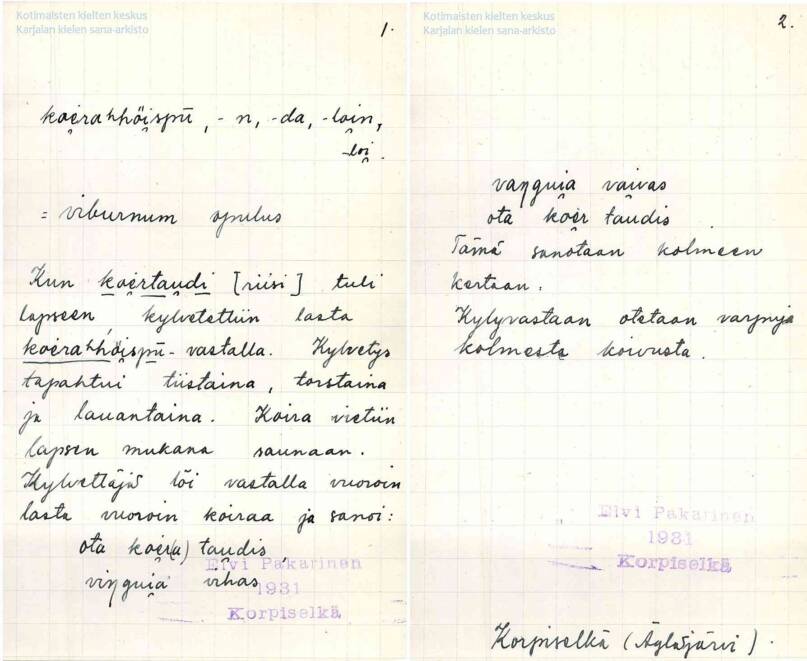 Kotimaisten kielten keskus
Karjalan kielen sana-arkisto
1.
koi̯rahhöi̯spū, -n, -da, -loi̯n,
-loi̯.
= viburnum opulus
Kun koi̯ertau̯di [riisi] tuli
lapseen, kylvetettiin lasta
koi̯rahhöi̯spū-vastalla. Kylvetys
tapahtui tiistaina, torstaina
ja lauantaina. Koira vietiin
lapsen mukana saunaan.
Kylvettäjä löi vastalla vuoroin
lasta vuoroin koiraa ja sanoi:
ota koi̯er(a) tau̯dis,
viŋguia vihas
Elvi Pakarinen
1931
Korpiselkä
Kotimaisten kielten keskus
Karjalan kielen sana-arkisto
2.
vaŋguia vai̯vas
ota koi̯er tau̯dis
Tämä sanotaan kolmeen
kertaan.
Kylyvastaan otetaan varpuja
kolmesta koivusta.
Elvi Pakarinen
1931
Korpiselkä
Korpiselkä (Ägläjärvi).